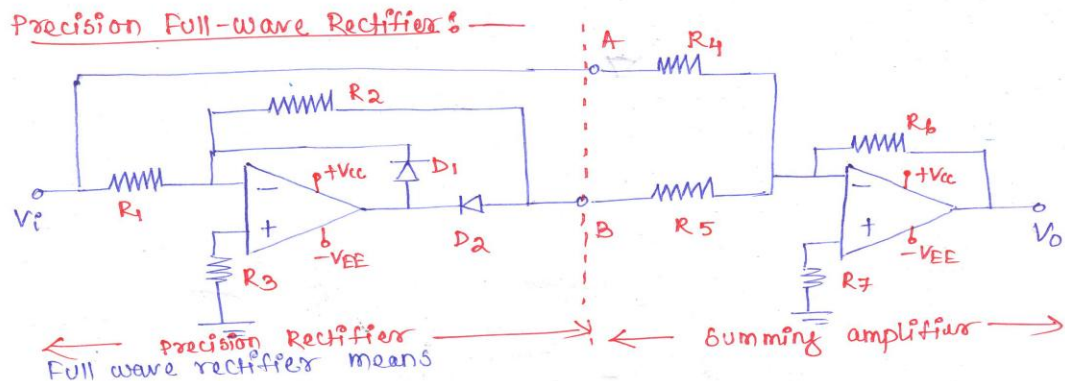 Precision Full-wave Rectifier:
A
R4
R2
R6
+Vcc
D1
+Vcc
Vi
R1
−
+
D2
B
R5
−
+
Vo
R3
-VEE
R7
-VEE
Precision Rectifier
Summing amplifier
Full wave rectifier means